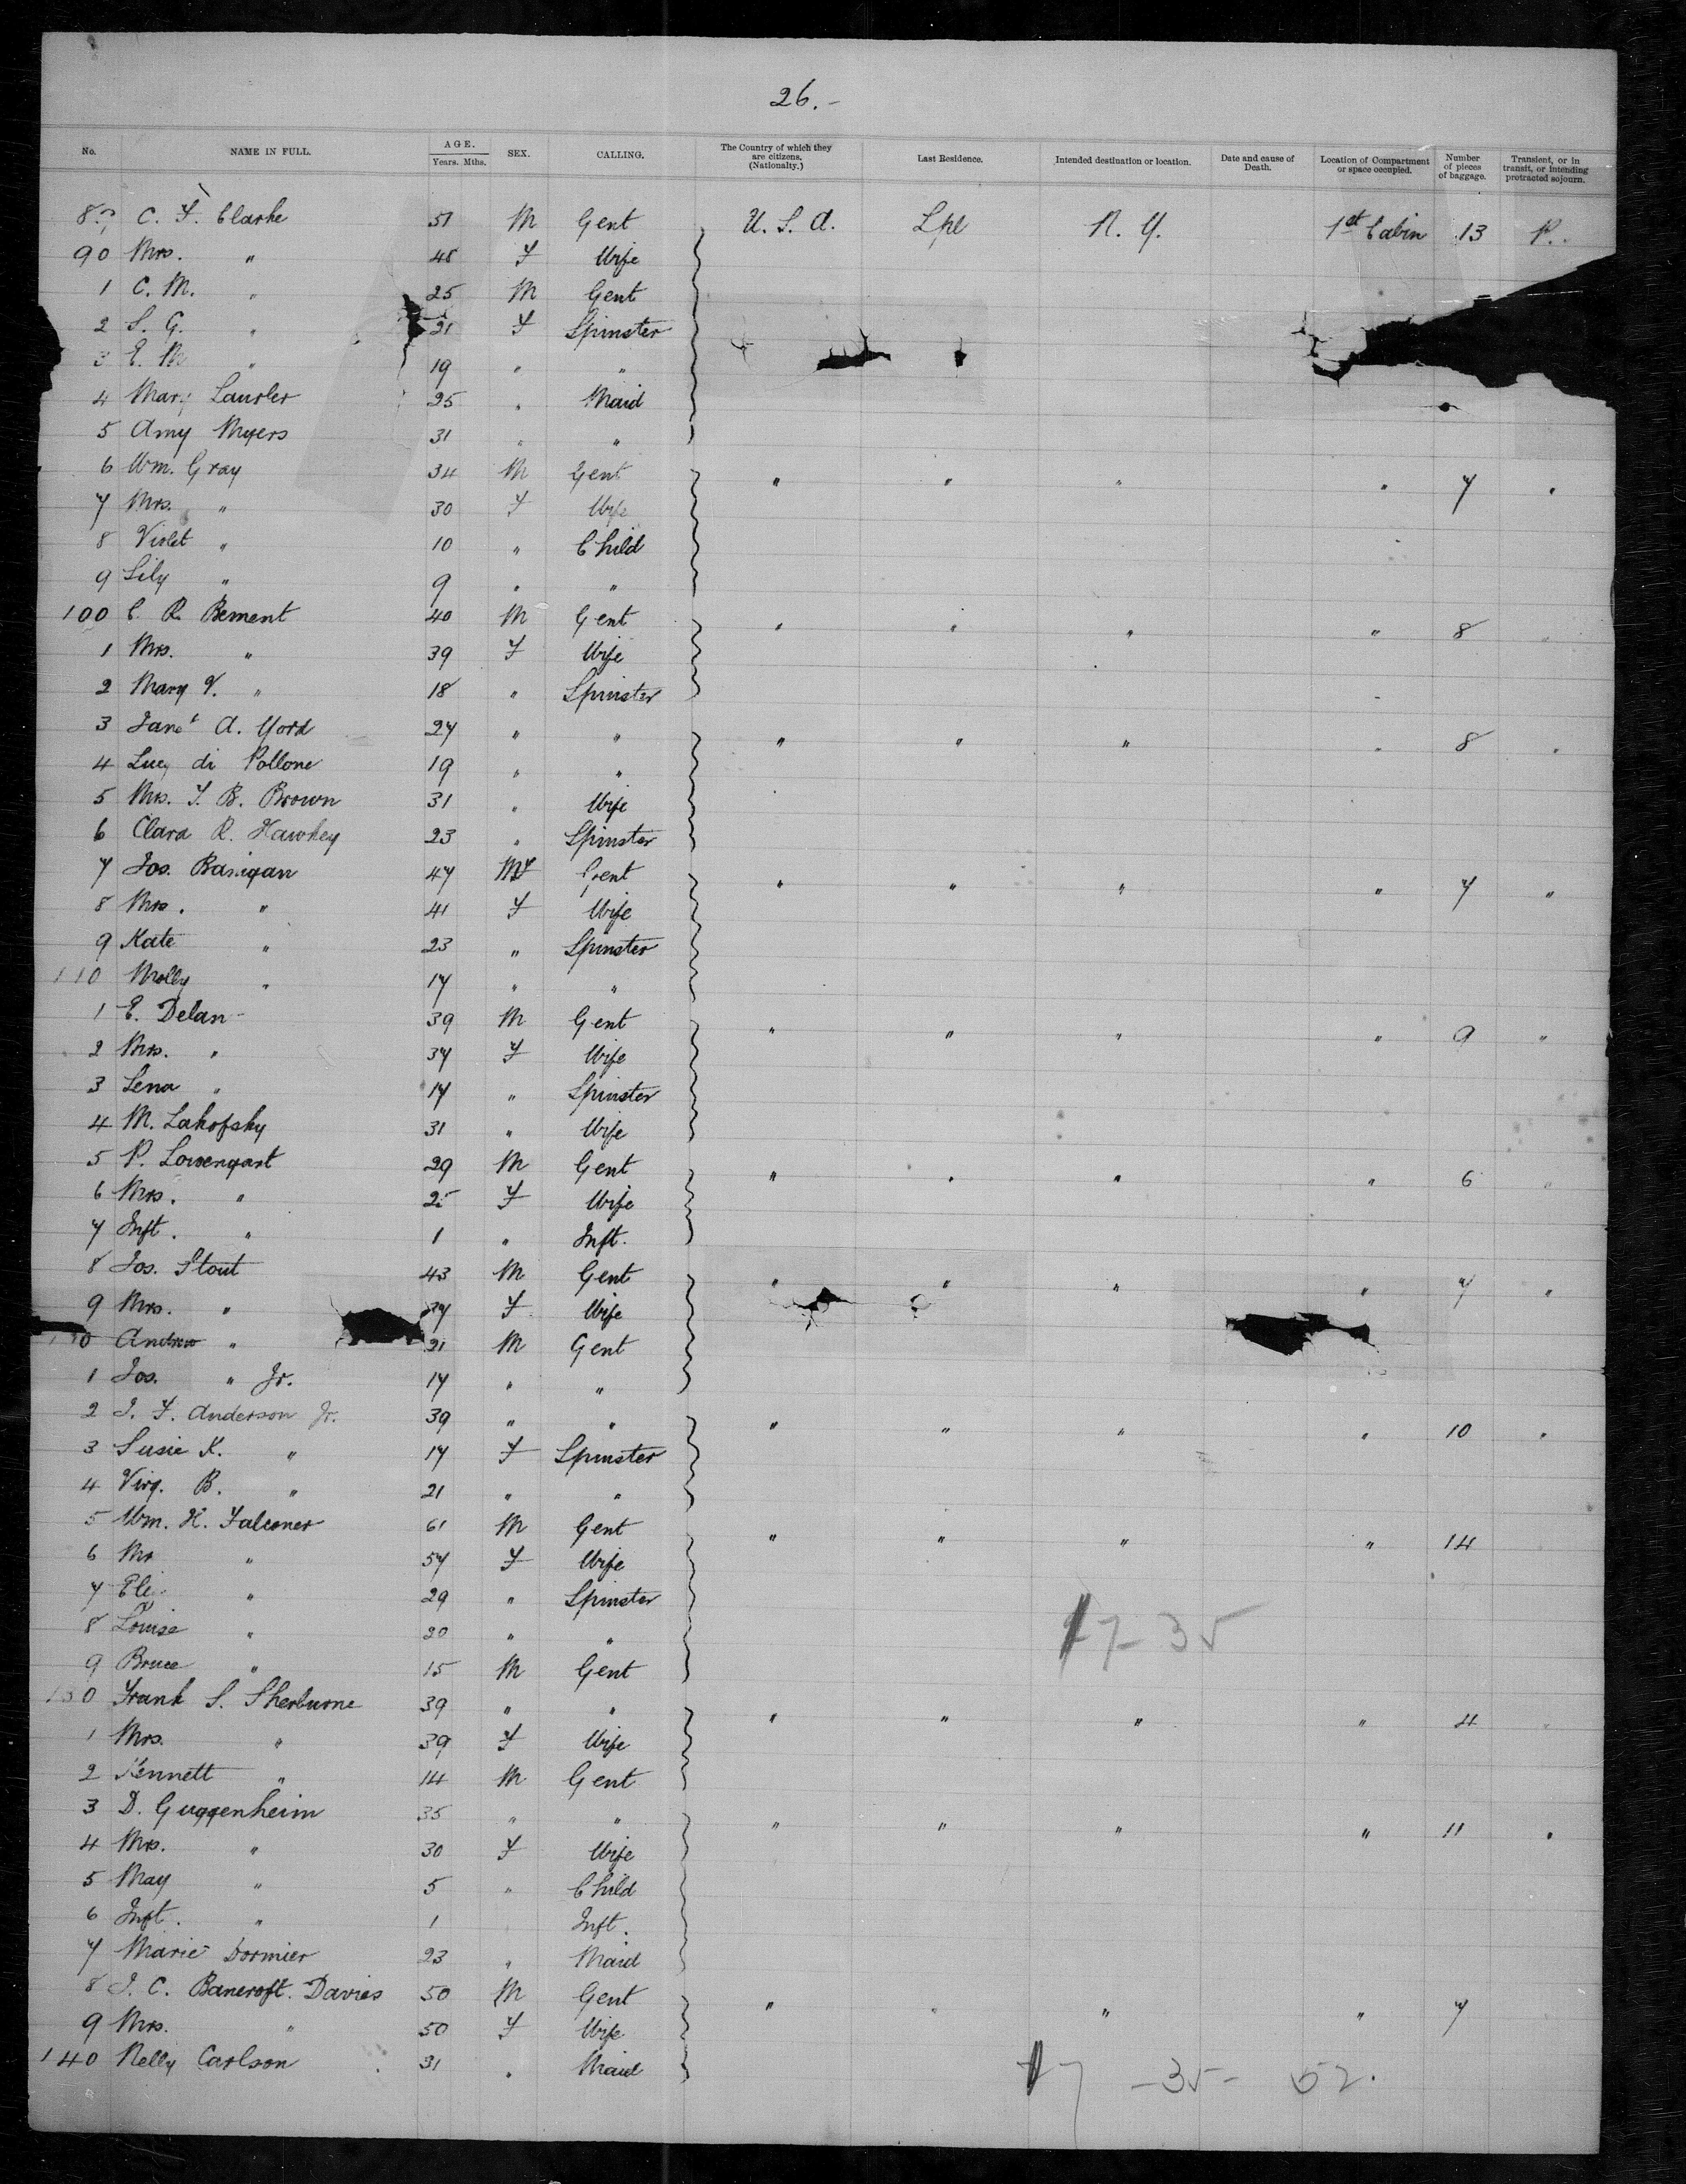 26.-
No. NAME IN FULL. AGE. Years. Mths. SEX. CALLING. The Country of which they are citizens. (Nationalty.) Last Residence. Intended destination or location. Date and cause of Death. Location of Compartment or space occupied. Number of pieces of baggage. Transient, or in transit, or intending protracted sojourn.
C. F. Clarke 51 M Gent U. S. A. Lpl N. Y. 1st Cabin 13 P.
90 Mrs. " 48 F Wife
1 C. M. " 25 M Gent
2 S. G. " 21 F Spinster
3 E. M " 19 " "
4 Mary 25 " Maid
5 Amy Myers 31 " "
6 Wm. Gray 34 M Gent " " " " 7 "
7 Mrs. " 30 F Wife
8 Violet " 10 " Child
9 Lily " 9 " "
100 C. R. Bement 40 M Gent " " " " 8 "
1 Mrs. " 39 F Wife
2 Mary V. " 18 " Spinster
3 A. 27 " " " " " " 8 "
4 Lucy di Pollone 19 " "
5 Mrs. T. B. Brown 31 " Wife
6 Clara R. Hawkey 23 " Spinster
7 Jos. Banigan 47 M Gent " " " " 7 "
8 Mrs. " 41 F Wife
9 Kate " 23 " Spinster
110 Molly " 17 " "
1 E. Delan 39 M Gent " " " " 9 "
2 Mrs. " 37 F Wife
3 Lena " 17 " Spinster
4 M. Lakofsky 31 " Wife
5 P. Lowengart 29 M Gent " " " " 6 "
6 Mrs. " 25 F Wife
7 Inft. " 1 " Inft.
8 Jos. Stout 43 M Gent " " " " 7 "
9 Mrs. " 37 F Wife
Andrew " 21 M Gent
1 Jos. " Jr. 17 " "
2 J. F. Anderson Jr. 39 " " " " " " 10 "
3 Susie K. " 17 F Spinster
4 Virg. B. " 21 " "
5 Wm. H. Falconer 61 M Gent " " " " 14
6 Mr " 57 F Wife
7 Eli " 29 " Spinster
8 Louise " 20 " "
17-35
9 Bruce " 15 M Gent
130 Frank S. Sherburne 39 " " " " " " 4 "
1 Mrs. " 39 F Wife
2 Kennett " 14 M Gent
3 D. Guggenheim 35 " " " " " " 11 "
4 Mrs. " 30 F Wife
5 May " 5 " Child
6 Inft. " 1 Inft.
7 Marie Dormier 23 " Maid
8 J. C. Bancroft. Davies 50 M Gent " " " " 7
9 Mrs. " 50 F Wife
140 Nelly Carlson 31 " Maid
17 -35- 52.